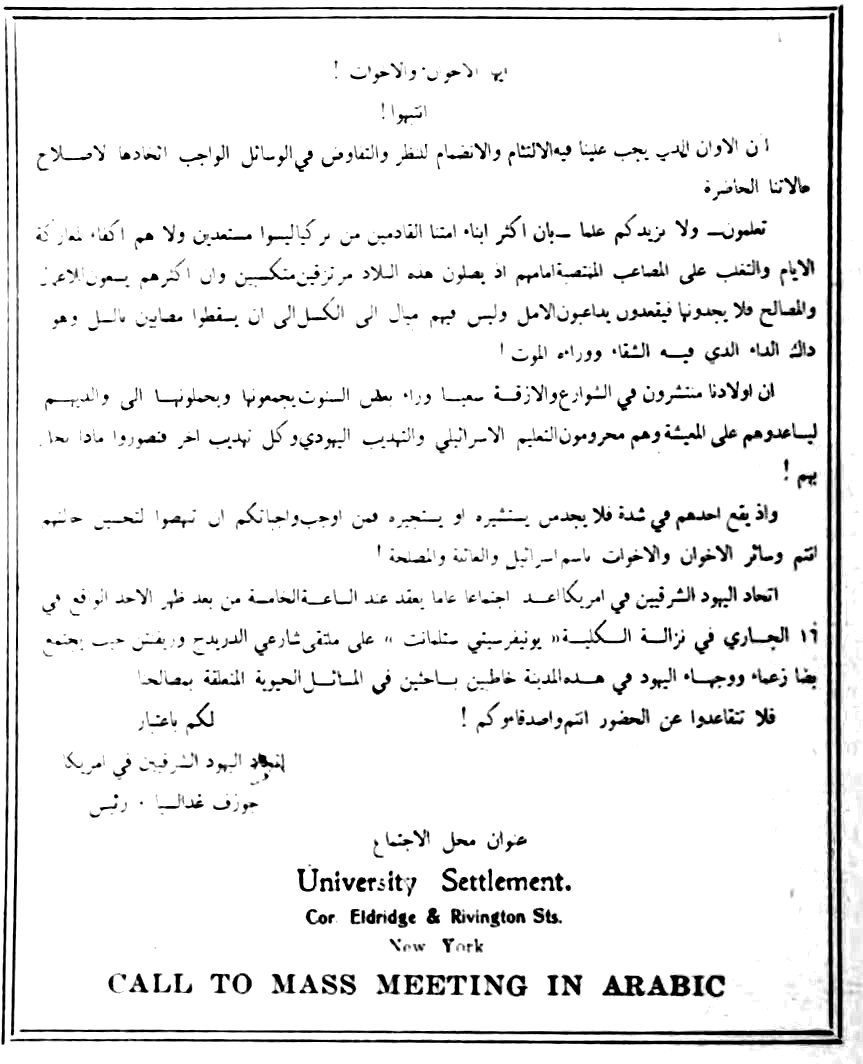 ايها الاخوان والاخوات !
انتبهوا !
أن الاوان الذي يجب علينا فيه الالتئام والانضمام للنظر والتفاوض في الوسائل الواجب اتخاذها لاصلاح
حالاتنا الحاضرة
تعلمون — ولا نزيدكم علما — بان اكثر ابناء امتنا القادمين من تركيا ليسوا مستعدين ولا هم اكفاء لمعاركة
الايام والتغلب على المصاعب المنتصبة امامهم اذ يصلون هذه البلاد مرتزقين متكسبين وان اكثرهم يسعون للاعمال
والمصالح فلا يجدونها فيقعدون يداعبون الامل وليس فيهم ميال الى الكسل الى ان يسقطوا مصابين بالسل وهو
ذاك الداء الذي فيه الشقاء ووراءه الموت !
ان اولادنا منتشرون في الشوارع والازقة سعيا وراء بعض السنوت يجمعونها ويحملونها الى والديهم
ليساعدوهم على المعيشة وهم محرومون التعليم الاسرائيلي والتهذيب اليهودي وكل تهذيب اخر فتصوروا ماذا يحل
بهم !
واذ يقع احدهم في شدة فلا يجد من يستشيره او يستجيره فمن اوجب واجباتكم ان تنهضوا لتحسين حالتهم
انتم وسائر الاخوان والاخوات باسم اسرائيل والعائلة والمصلحة !
اتحاد اليهود الشرقيين في امريكا اعد اجتماعا عاما يعقد عند الساعة الخامسة من بعد ظهر الاحد الواقع في
الجاري في نزالة الكلية « يونيفرسيتي ستلمانت » على ملتقى شارعي الدريدج وريفنتن حيث يجتمع
ايضا زعماء ووجهاء اليهود في هذه المدينة خاطبين باحثين في المسائل الحيوية المتعلقة بمصالحنا
فلا تتقاعدوا عن الحضور انتم واصدقاءوكم ! لكم باعتبار
اتحاد اليهود الشرقيين في امريكا
جوزف غداليا ، رئيس
عنوان محل الاجتماع
University Settlement.
Cor. Eldridge & Rivington Sts.
New York
CALL TO MASS MEETING IN ARABIC